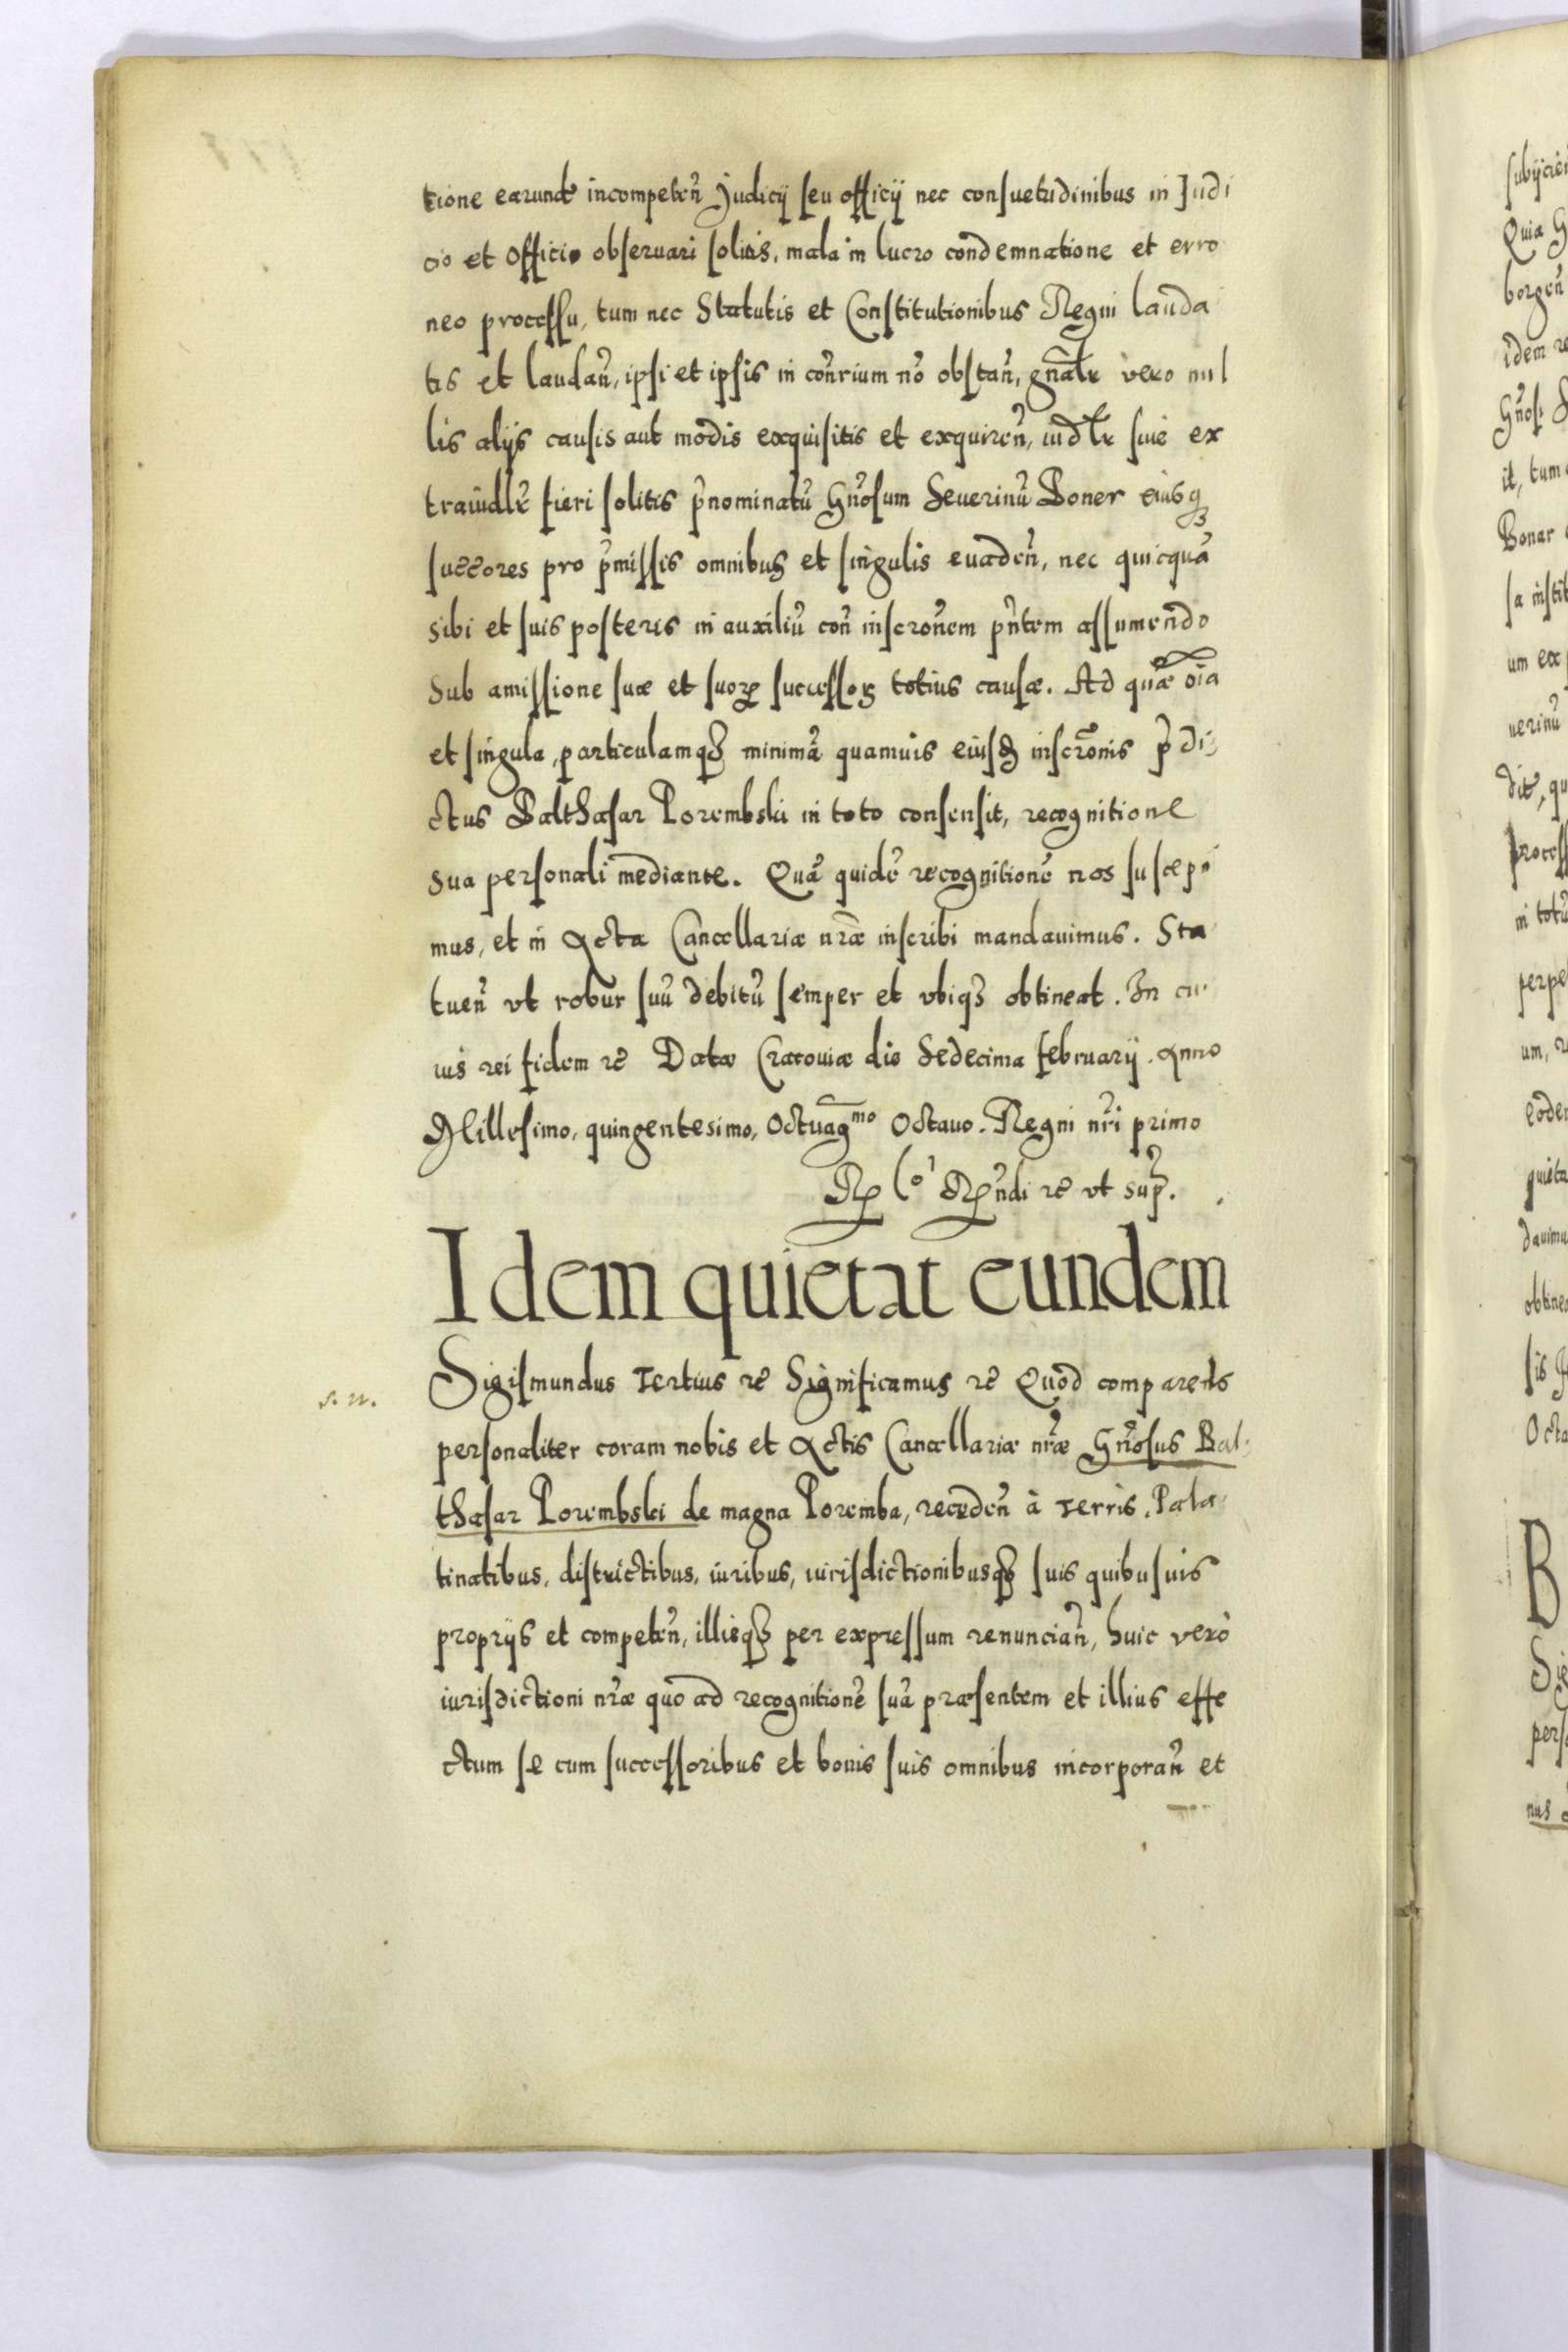 tione earundē incompeten̄ Judicij seu officij nec consuetudinibus in Judi
cio et Officio obseruari solitis, mala in lucro condemnatione et erro
neo processu, tum nec Statutis et Constitutionibus Regni lauda
tis et laudan̄, ipsi et ipsis in con̄rium no᷉ obstan̄, gn̄alr vero nul
lis alijs causis aut modis exquisitis et exquiren̄, iudlr siue ex
traiudlr fieri solitis p̄nominatū Gn̄osum Seuerinū Boner eiusq3
succ̄ores pro p̄missis omnibus et singulis euaden̄, nec quicquā
sibi et suis posteris in auxiliū con̄ inscron̄em pn̄tem assumendo
Sub amissione suæ et suoꝝ successoꝝ totius causæ. Ad quæ oīa
et singula, particulamq3 minimā quamuis eiusd inscrōnis p̄ di
ctus Balthasar Porembski in toto consensit, recognitione
sua personali mediante. Quā quidē recognitionē nos suscepi
mus, et in Acta Cancellariæ nr̄æ inscribi mandauimus. Sta
tuen̄ vt robur suū debitū semper et vbiq3 obtineat. In cu
ius rei fidem rē Datæ Cracouiæ die Sedecima februarij. Anno
Millesimo, quingentesimo, Octuag̅mo Octauo. Regni nr̄i primo
Rꝑ lo Rꝑn̄di rē vt sup̄.
Idem quietat eundem
s. n.
Sigismundus Tertius rē Significamus rē Quod comparens
personaliter coram nobis et Actis Cancellariæ nr̄æ Gn̄osus Bal
thasar Porembski de magna Poremba, receden̄ à Terris, Pala
tinatibus, districtibus, iuribus, iurisdictionibusq3 suis quibusuis
proprijs et competen̄, illisq3 per expressum renuncian̄, huic verò
iurisdictioni nr̄æ quo ad recognitionē suā præsentem et illius effe
ctum se cum successoribus et bonis suis omnibus incorporan̄ et